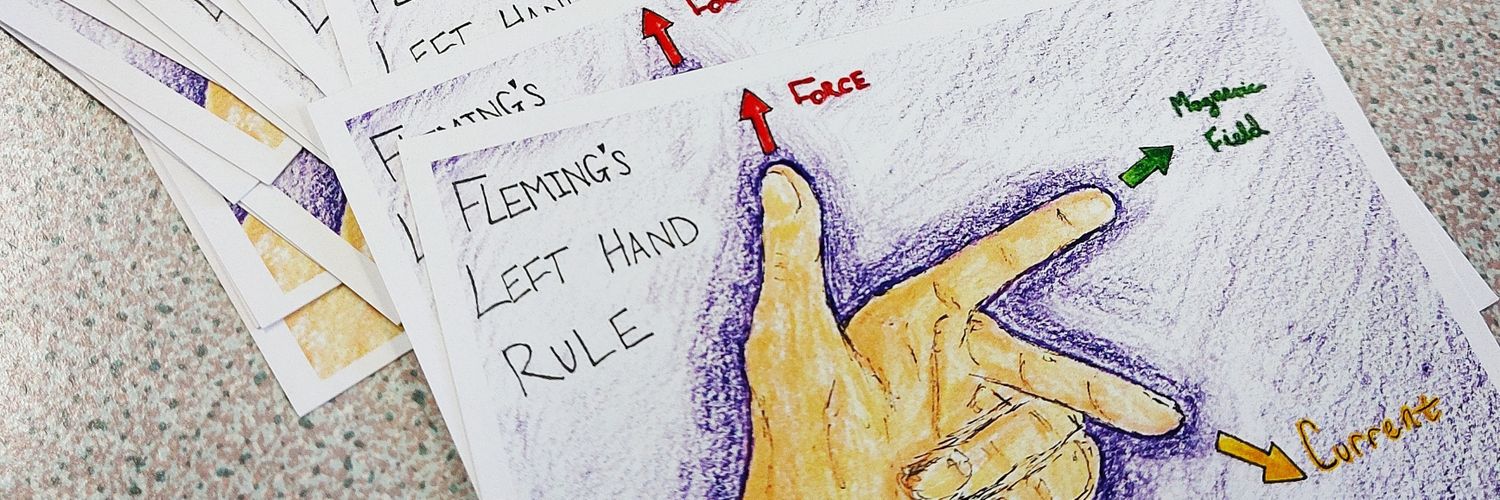 LEFT HAN
FLEMING'S
FORCE
Magnetic
Field
FLEMING'S
LEFT HAND
RULE
Current